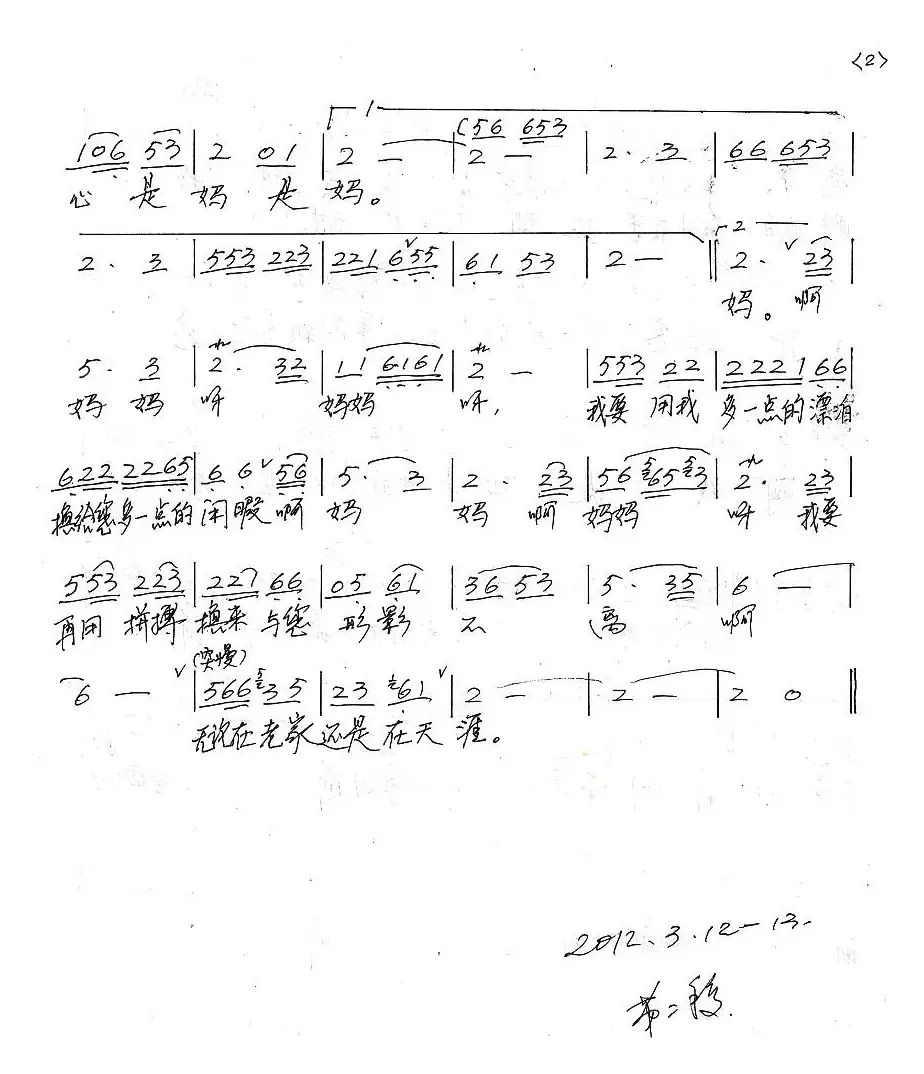 <2>
1
(56 653
106 53 | 2 01 | 2 — | 2 — | 2· 3 | 66 653 |
心 是 妈 是 妈。
2
2· 3 | 553 223 | 221 655 | 61 53 | 2 — ‖ 2· 23 |
妈。啊
5· 3 | 2· 32 | 11 6161 | 2 — | 553 22 | 2221 66 |
妈 妈 呀 妈妈 呀, 我要 用我 多一点的漂泊
622 2265 | 66 56 | 5· 3 | 2· 23 | 56 5 65 5 3 | 2· 23 |
换给您多一点的闲暇 啊 妈 妈 啊 妈妈 呀 我要
553 223 | 227 66 | 05 61 | 36 53 | 5· 35 | 6 — |
再用 拼搏 换来 与您 形影 不 离 啊
(突慢)
6 — | 566 5 35 | 23 61 | 2 — | 2 — | 2 0 ‖
无论在老家还是在天涯。
2012.3.12—13.
第二稿.